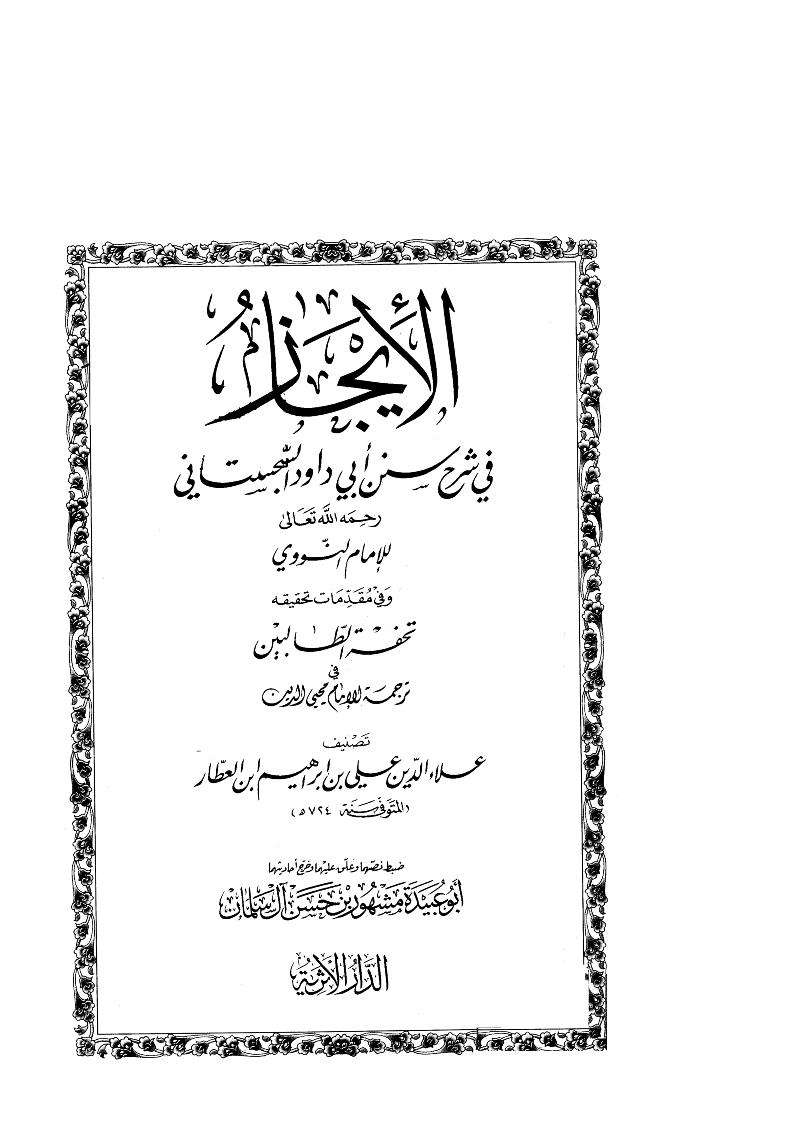 الإيجاز
في شرح سنن أبي داود السجستاني
رحمه الله تعالى
للإمام النووي
وفي مقدمات تحقيقه
تحفة الطالبين
في
ترجمة الإمام محيي الدين
تصنيف
علاء الدين علي بن إبراهيم ابن العطار
(المتوفى سنة ٧٢٤ ه)
ضبط نصها وعلق عليها وخرج أحاديثها
أبو عبيدة مشهور بن حسن آل سلمان
الدار الأثرية